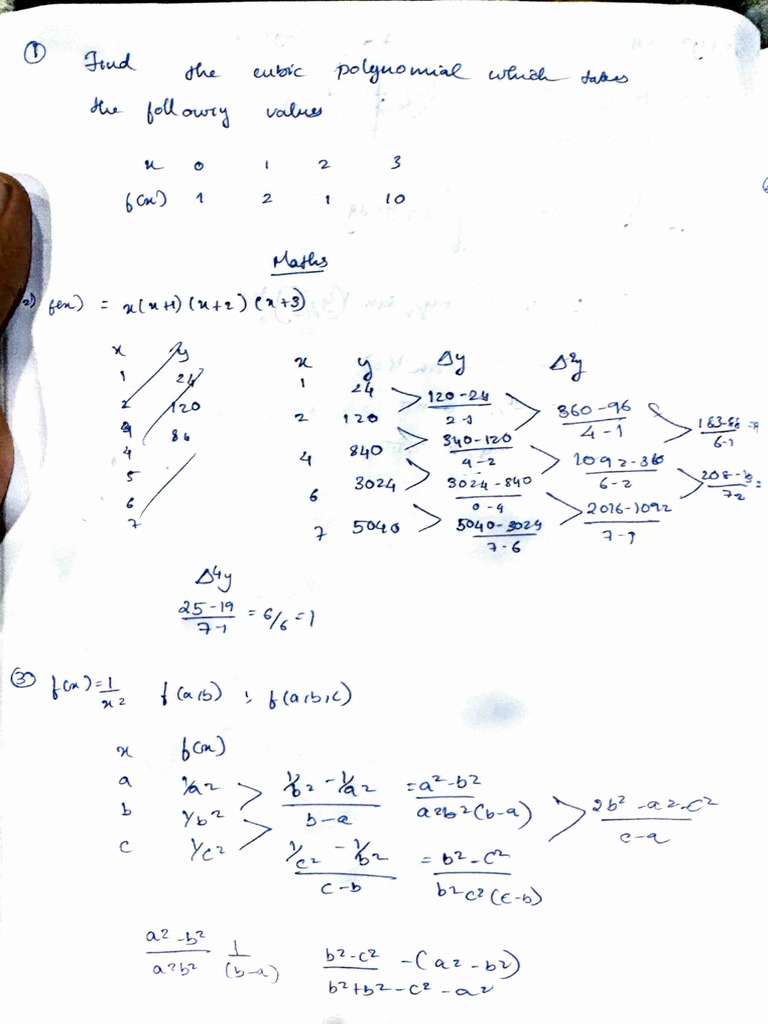 ① Find the cubic polynomial which takes
the following values
x 0 1 2 3
f(x) 1 2 1 10
Maths
2) f(x) = x(x+1)(x+2)(x+3)
x y
1 24
2 120
4 84
5
6
7
x y Δy Δ²y
1 24
120-24 / 2-1
2 120 360-96 / 4-1
840-120 / 4-2
4 840 1092-360 / 6-2
3024-840 / 6-4
6 3024 2016-1092 / 7-
5040-3024 / 7-6
7 5040
Δ4y
25-19 / 7-1 = 6/6 = 1
③ f(x) = 1/x2 f(a,b) ; f(a,b,c)
x f(x)
a 1/a2 1/b2 - 1/a2 / b-a = a2-b2 / a2b2(b-a)
b 1/b2 2b2-a2-c2 / c-a
c 1/c2 1/c2 - 1/b2 / c-b = b2-c2 / b2c2(c-b)
a2-b2 / a2b2 1/(b-a) b2-c2 -(a2-b2)
b2+b2-c2-a2